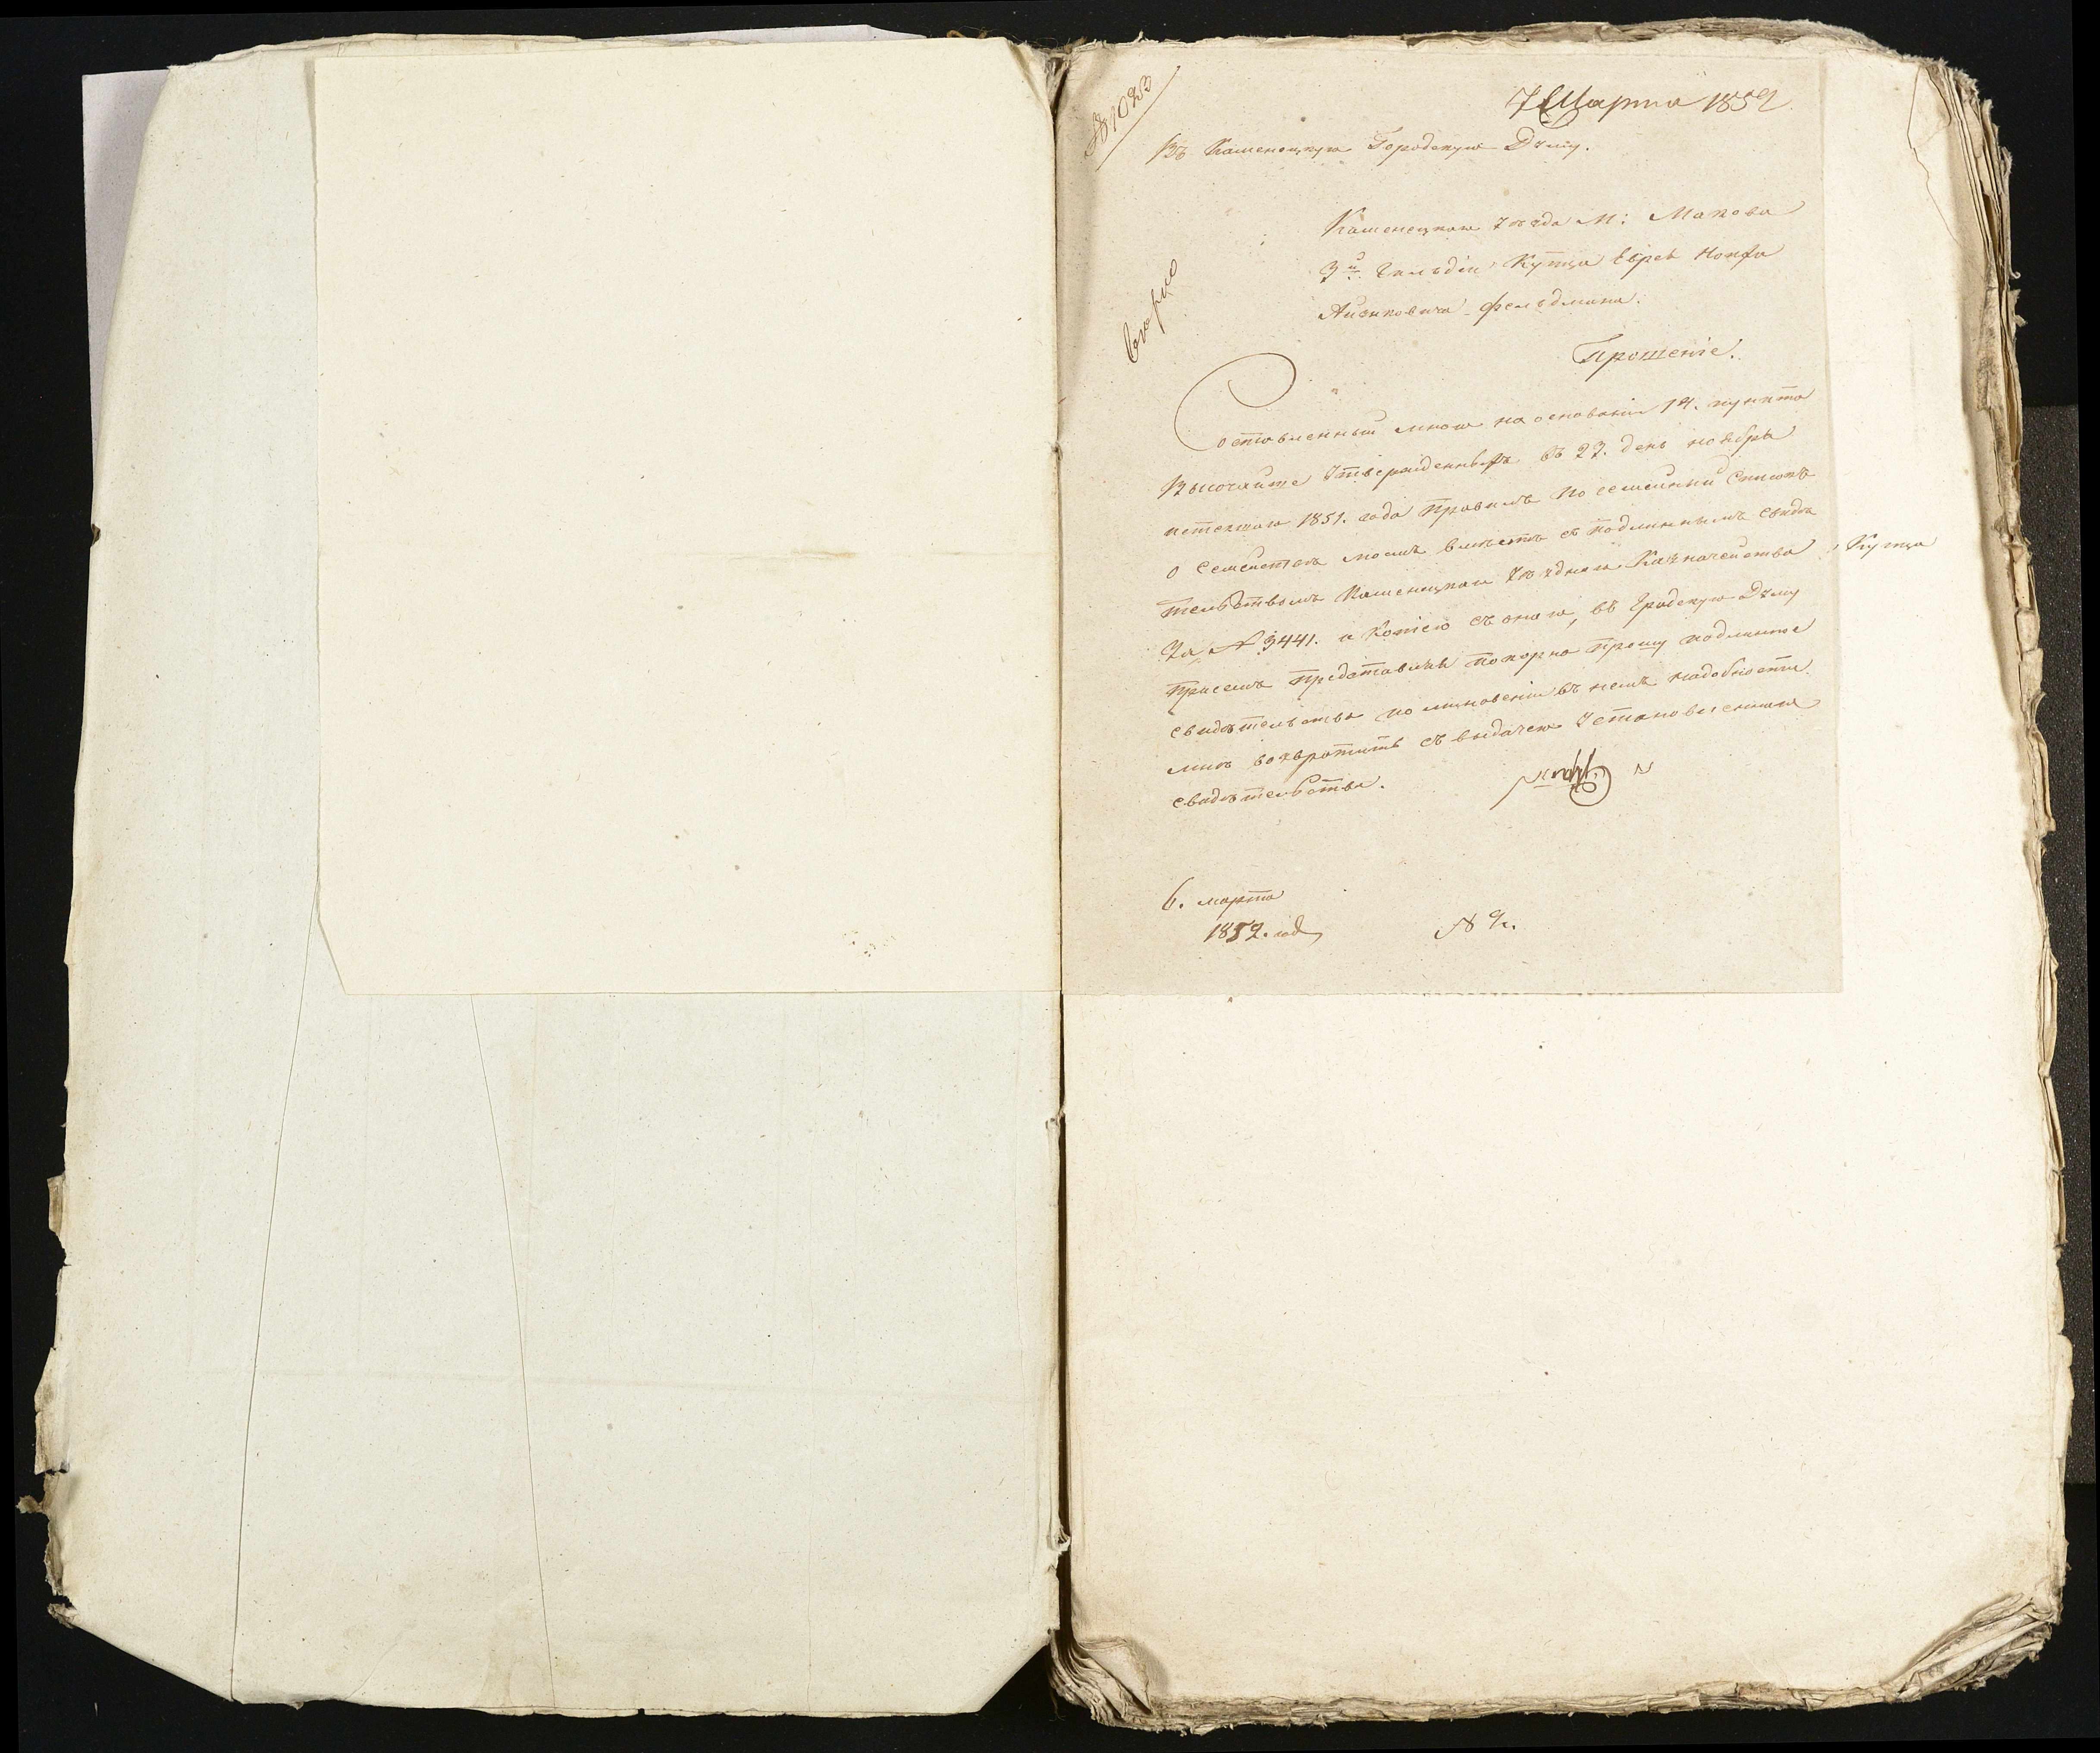 № 1023
7 Марта 1852
Въ Каменецкую Городскую Думу.
Каменецкаго уѣзда М: Макова
3й. Гильдіи Купца Еврея
Айзиковича Фельдмана.
Прошеніе.
Составленный мною на основаніи 14. пункта
Высочайше утвержденныхъ въ 23. день ноября
истекшаго 1851. года Правилъ по семейный списокъ
о семействѣ моемъ вмѣстѣ съ подлиннымъ свидѣ
тельствомъ Каменецкаго уѣзднаго Казначейства
за № 3441. и копіею съ онаго, въ Градскую Думу
при семъ представляя покорно прошу подлинное
свидѣтельство по минованіи въ немъ надобности
мнѣ возвратить съ выдачею установленнаго
свидѣтельства.
6. марта
1852. года
Купца